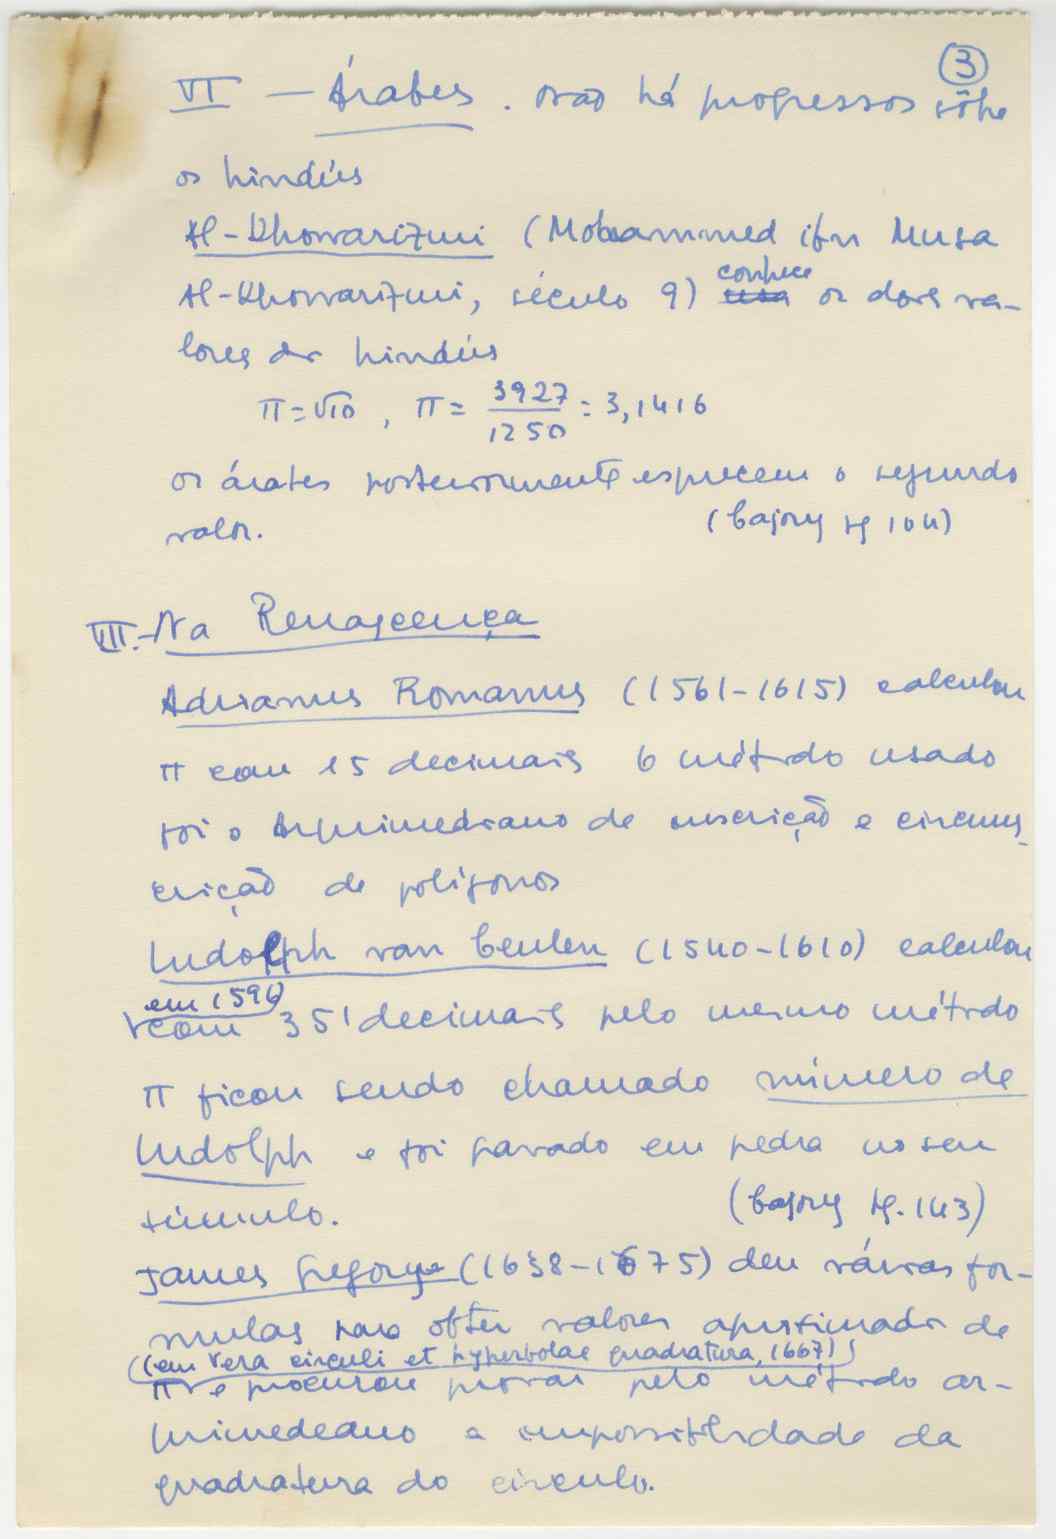 ③
VI — Árabes. Não há progressos sôbre
os hindús
Al-Khowarizmi (Mohammed ibn Musa
Al-Khowarizmi, século 9) conhece os dois va-
lores dos hindús
π=√10, π= 3927/1250 = 3,1416
os árabes posteriormente esquecem o segundo
valor. (Cajory pg 104)
VII.- Na Renascença
Adrianus Romanus (1561-1615) calculou
π com 15 decimais O método usado
foi o Arquimediano de inscrição e circuns-
crição de polígonos
Ludolph van Ceulen (1540-1610) calculou
em 1596
com 35 decimais pelo mesmo método
π ficou sendo chamado número de
Ludolph e foi gravado em pedra no seu
túmulo. (Cajory pg. 143)
James Gregory (1638-1675) deu várias for-
mulas para obter valores aproximados de
(em Vera circuli et hyperbolae quadratura, 1667)
π e procurou provar pelo método ar-
quimedeano a impossibilidade da
quadratura do circulo.